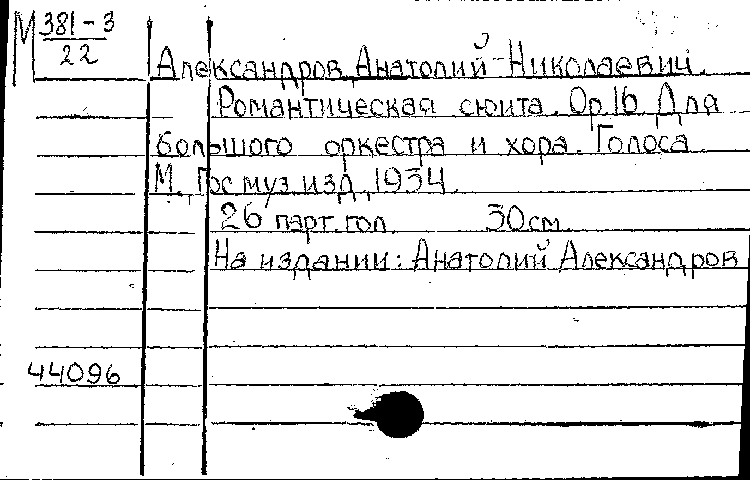 М 381-3
22
Александров, Анатолий Николаевич.
Романтическая сюита. Ор.16. Для
большого оркестра и хора. Голоса.
М., Гос.муз.изд., 1934.
26 парт.гол. 30см.
На издании: Анатолий Александров
44096